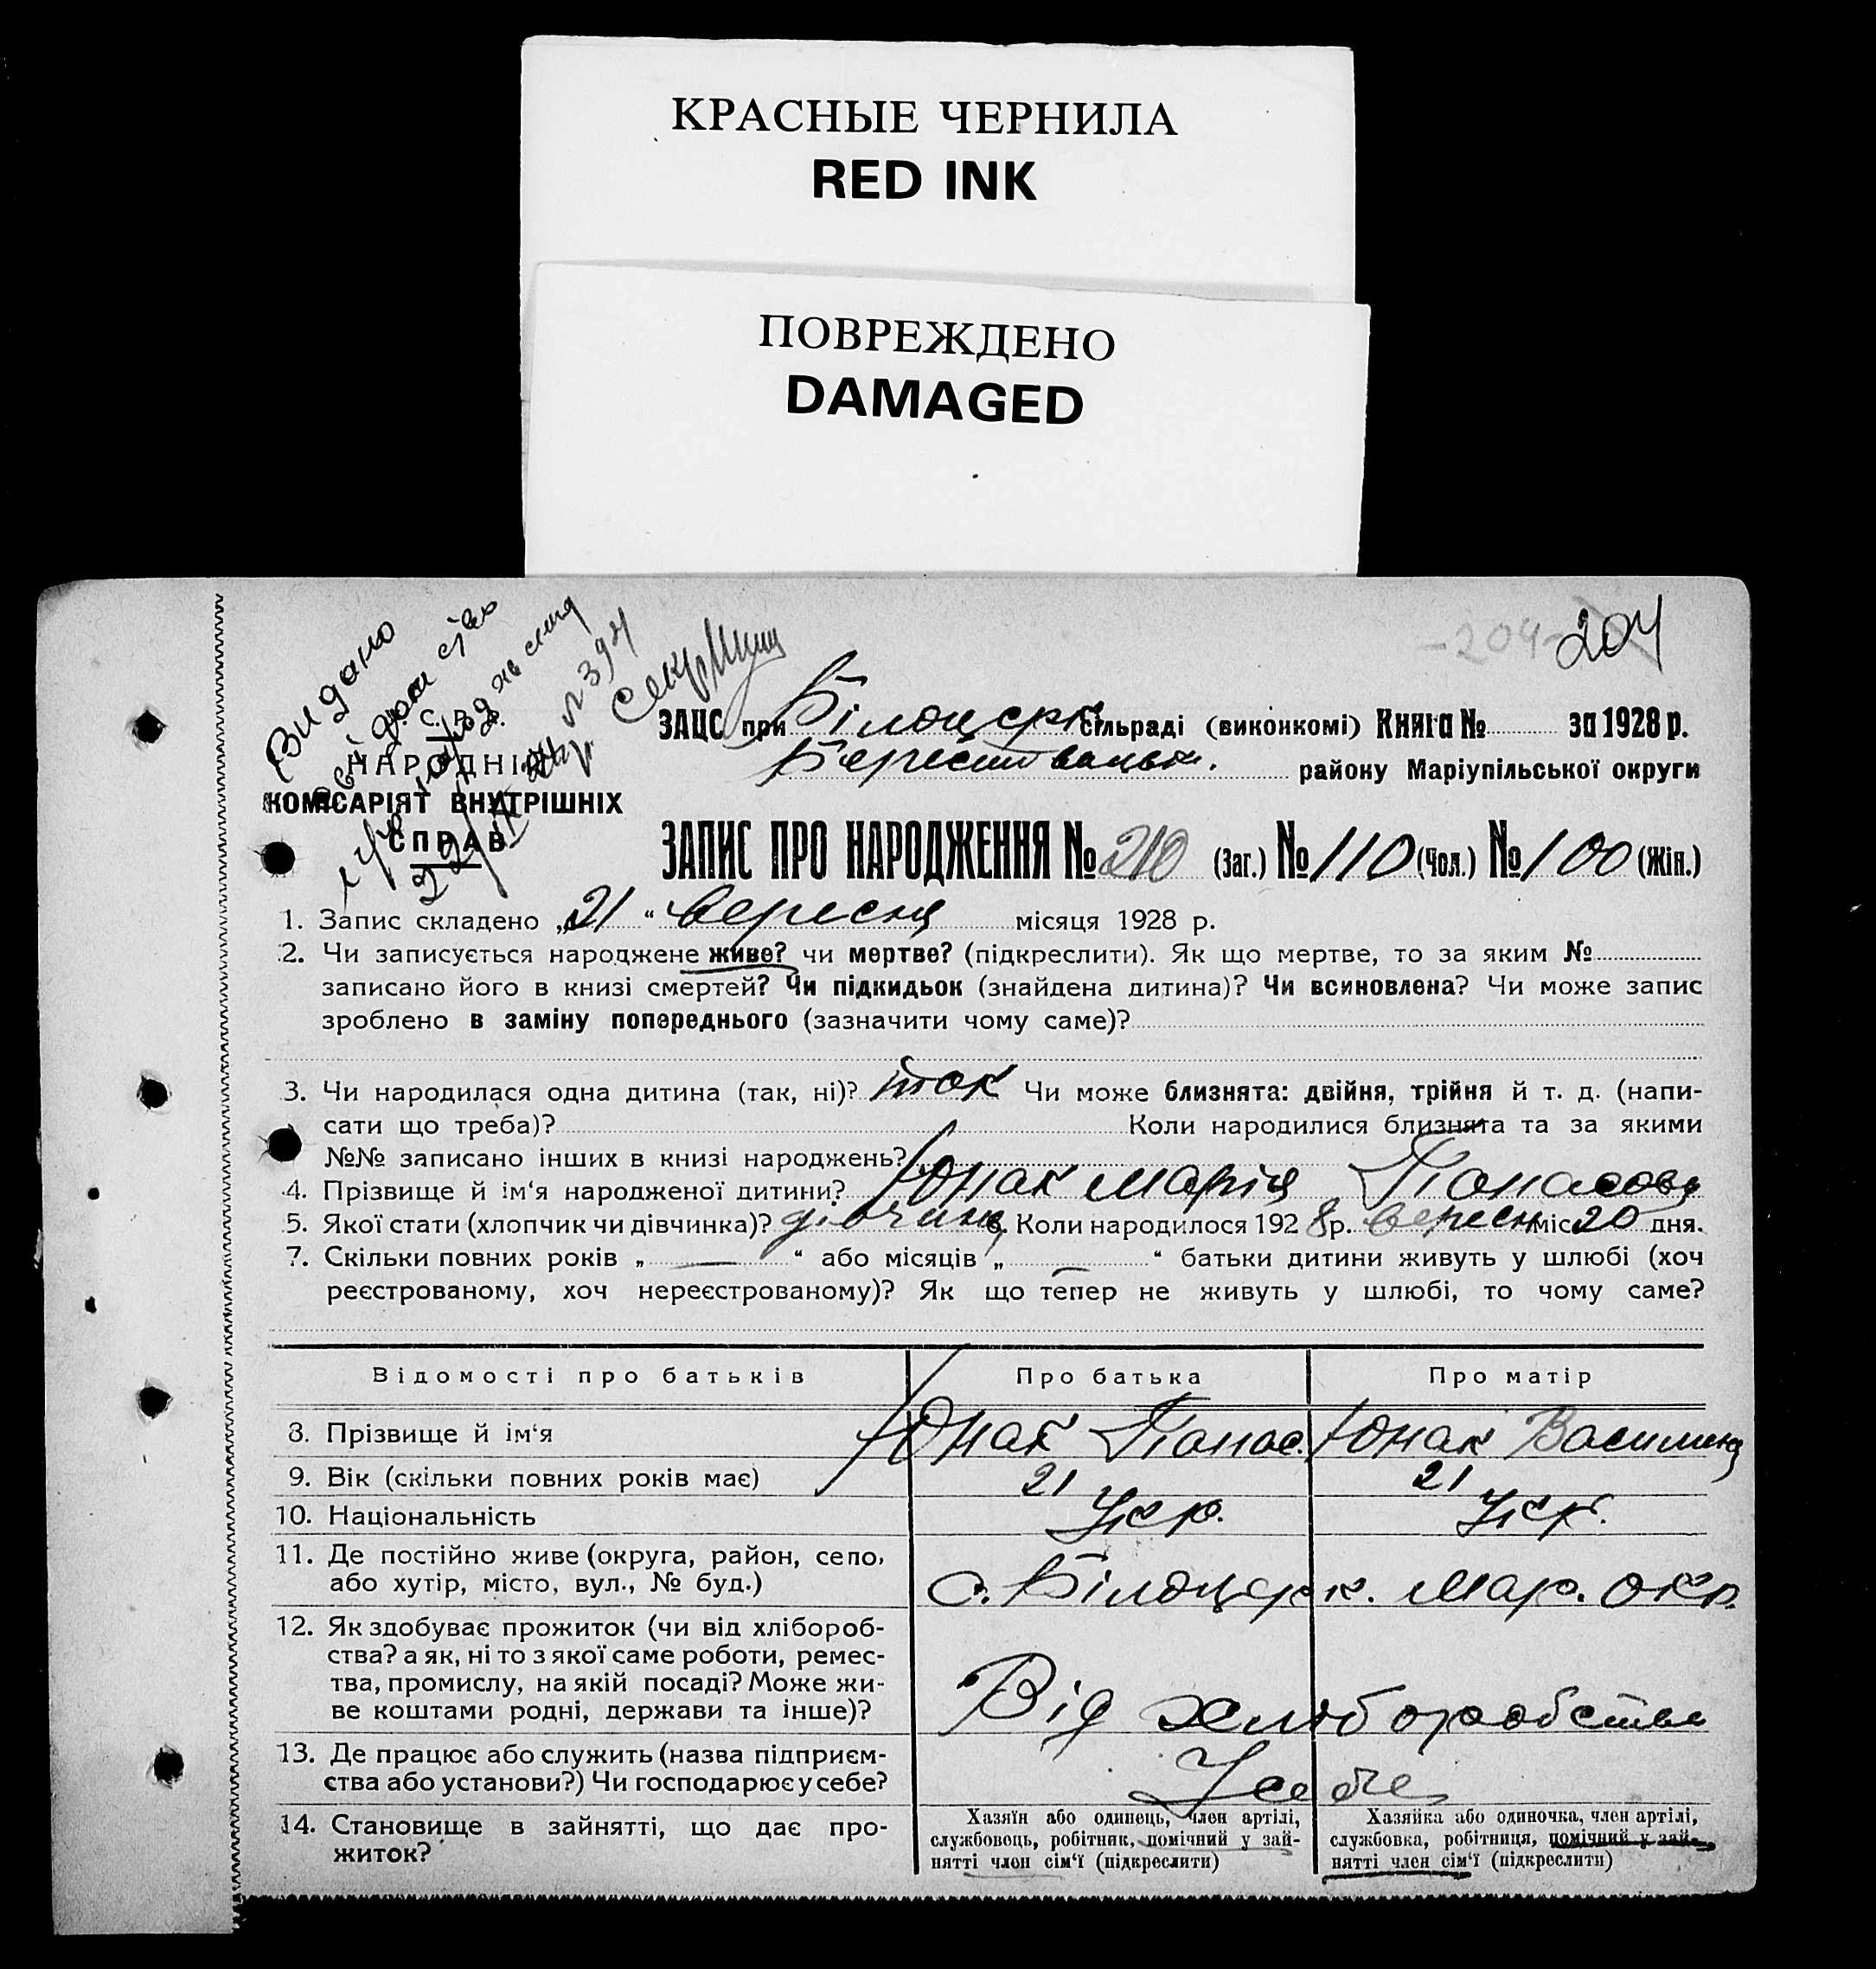 КРАСНЫЕ ЧЕРНИЛА
RED INK
ПОВРЕЖДЕНО
DAMAGED
-204-
204
Видано
N 394
ЗАЦС при Білоцерк. сільраді (виконкомі) Книга № за 1928 р.
районy Маріупільської округи
НАРОДНІЙ
КОМІСАРІЯТ ВНУТРІШНІХ
СПРАВ
ЗАПИС ПРО НАРОДЖЕННЯ № 210 (Заг.) № 110 (Чол.) № 100 (Жін.)
1. Запис складено „21“ вересня місяця 1928 р.
2. Чи записується народжене живе? чи мертве? (підкреслити). Як що мертве, то за яким №
записано його в книзі смертей? Чи підкидьок (знайдена дитина)? Чи всиновлена? Чи може запис
зроблено в заміну попереднього (зазначити чому саме)?
3. Чи народилася одна дитина (так, ні)? так Чи може близнята: двійня, трійня й т. д. (напи-
сати що треба)? Коли народилися близнята та за якими
№№ записано інших в книзі народжень?
4. Прізвище й ім‘я народженої дитини? Юнак Марія Панасова
5. Якої стати (хлопчик чи дівчинка)? дівчина 6. Коли народилося 1928 р. вересня міс. 20 дня.
7. Скільки повних років „ — “ або місяців „ — “ батьки дитини живуть у шлюбі (хоч
реєстрованому, хоч нереєстрованому)? Як що тепер не живуть у шлюбі, то чому саме?
Відомості про батьків Про батька Про матір
8. Прізвище й ім‘я Юнак Панас. Юнак Василина
9. Вік (скільки повних років має) 21 21
10. Національність Укр. Укр.
11. Де постійно живе (округа, район, село,
або хутір, місто, вул., № буд.) с. Білоцерк. Мар. окр.
12. Як здобуває прожиток (чи від хлібороб-
ства? а як, ні то з якої саме роботи, ремес-
тва, промислу, на якій посаді? Може жи-
ве коштами родні, держави та інше)? Від хліборобства
13. Де працює або служить (назва підприєм-
ства або установи?) Чи господарює у себе? У себе
14. Становище в зайнятті, що дає про-
житок?
Хазяїн або одинець, член артілі,
службовець, робітник, помічний у зай-
нятті член сім‘ї (підкреслити)
Хазяйка або одиночка, член артілі,
службовка, робітниця, помічний у зай-
нятті член сім‘ї (підкреслити)